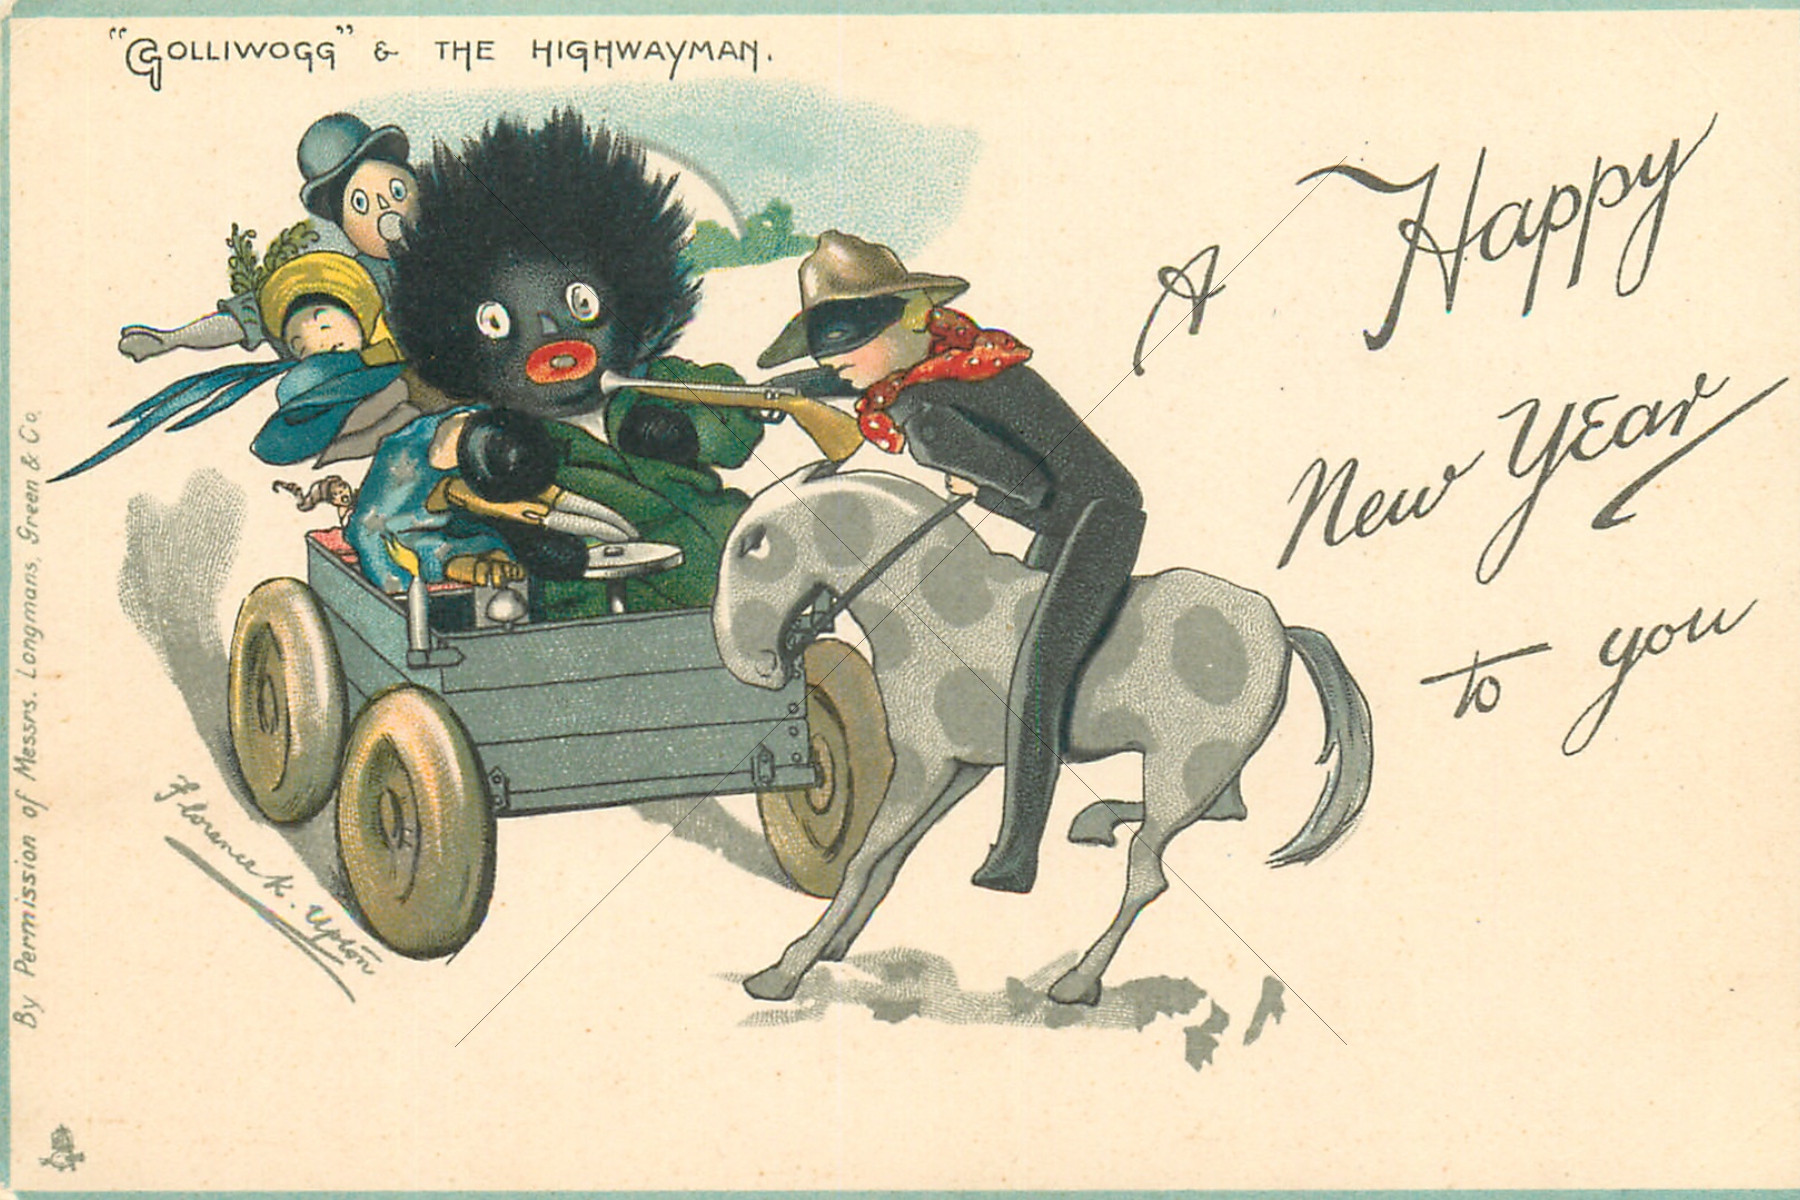 "GOLLIWOGG" & THE HIGHWAYMAN.
A Happy
New YEar
to you
Florence K. Upton
By Permission of Messrs. Longmans, Green & Co.